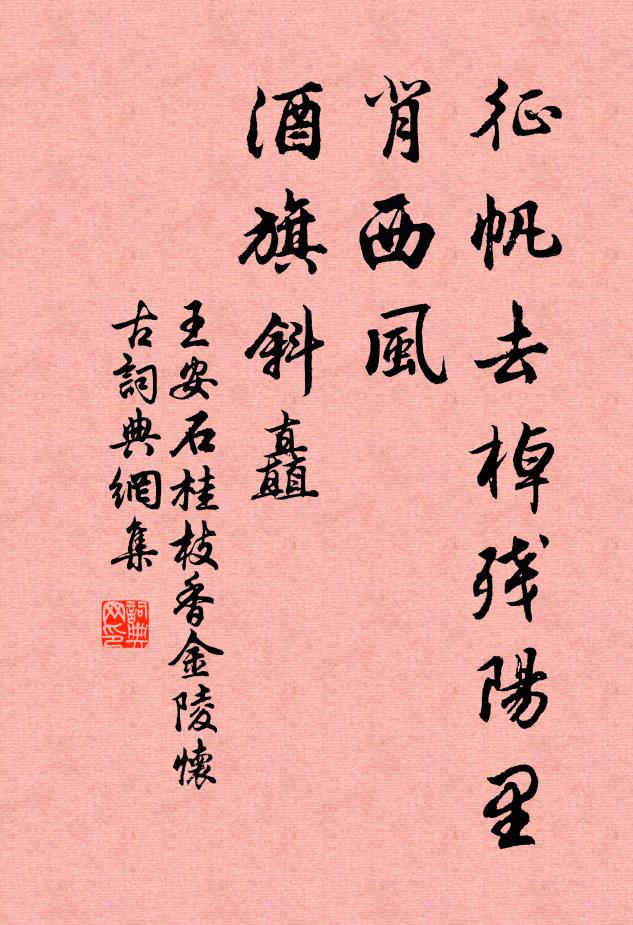 征帆去棹残陽里
背西風
酒旗斜矗
王安石桂枝香金陵懷
古詞典網集
詞典
网印